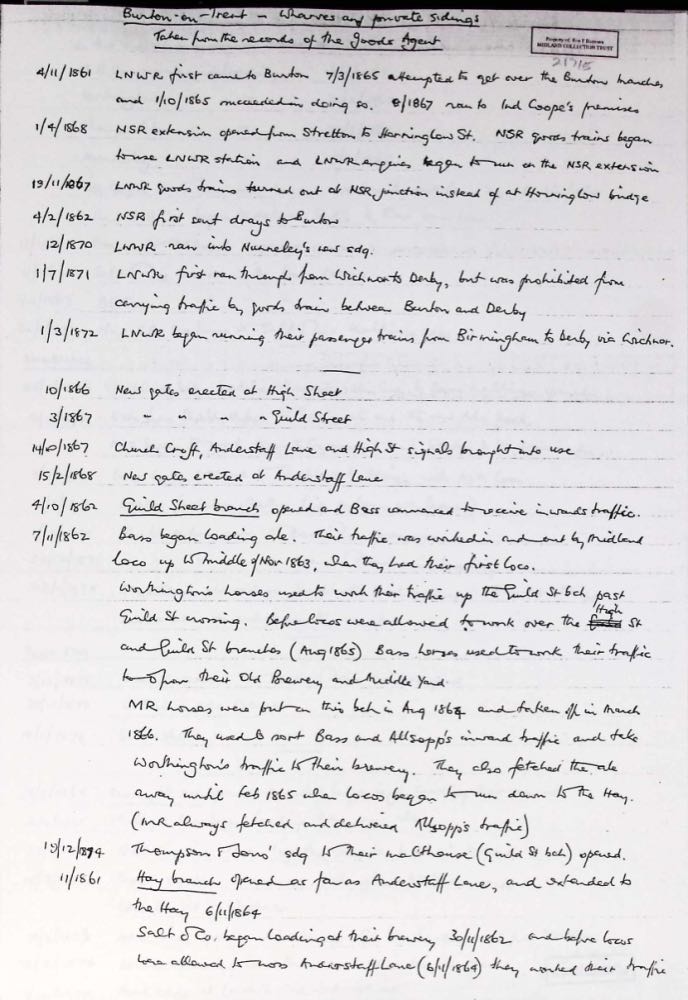 Burton-on-Trent - Wharves and private sidings
Taken from the records of the Goods Agent
Property of: Roy F Burrows
MIDLAND COLLECTION TRUST
21715
4/11/1861 LNWR first came to Burton 7/3/1865 attempted to get over the Burton branches
and 1/10/1865 succeeded in doing so. 8/1867 ran to Ind Coope's premises
1/4/1868 NSR extension opened from Stretton to Horninglow St. NSR goods trains began
to use LNWR station and LNWR engines began to run on the NSR extension
19/11/1867 LNWR goods trains turned out at NSR junction instead of at Horninglow bridge
4/2/1862 NSR first sent drays to Burton
12/1870 LNWR ran into Nunneley's new sdg.
1/7/1871 LNWR first ran through from Wichnor to Derby, but was prohibited from
carrying traffic by goods train between Burton and Derby
1/3/1872 LNWR began running their passenger trains from Birmingham to Derby via Wichnor.
10/1866 New gates erected at High Street
3/1867 " " " " Guild Street
14/10/1867 Church Croft, Anderstaff Lane and High St signals brought into use
15/2/1868 New gates erected at Anderstaff Lane
4/10/1862 Guild Street branch opened and Bass commenced to receive inwards traffic.
7/11/1862 Bass began loading ale. Their traffic was worked in and out by Midland
loco up to middle of Nov 1863, when they had their first loco.
Worthington's horses used to work their traffic up the Guild St bch past
Guild St crossing. Before locos were allowed to work over the High St
and Guild St branches (Aug 1865) Bass horses used to work their traffic
to & from their Old Brewery and Middle Yard
MR horses were put on this bch in Aug 1864 and taken off in March
1866. They used to sort Bass and Allsopp's inward traffic and take
Worthington's traffic to their brewery. They also fetched the ale
away until Feb 1865 when locos began to run down to the Hay.
(MR always fetched and delivered Allsopp's traffic)
19/12/1894 Thompson & Sons' sdg to their malthouse (Guild St bch) opened.
11/1861 Hay branch opened as far as Anderstaff Lane, and extended to
the Hay 6/11/1864
Salt & Co. began loading at their brewery 30/11/1862 and before locos
were allowed to cross Anderstaff Lane (6/11/1864) they worked their traffic